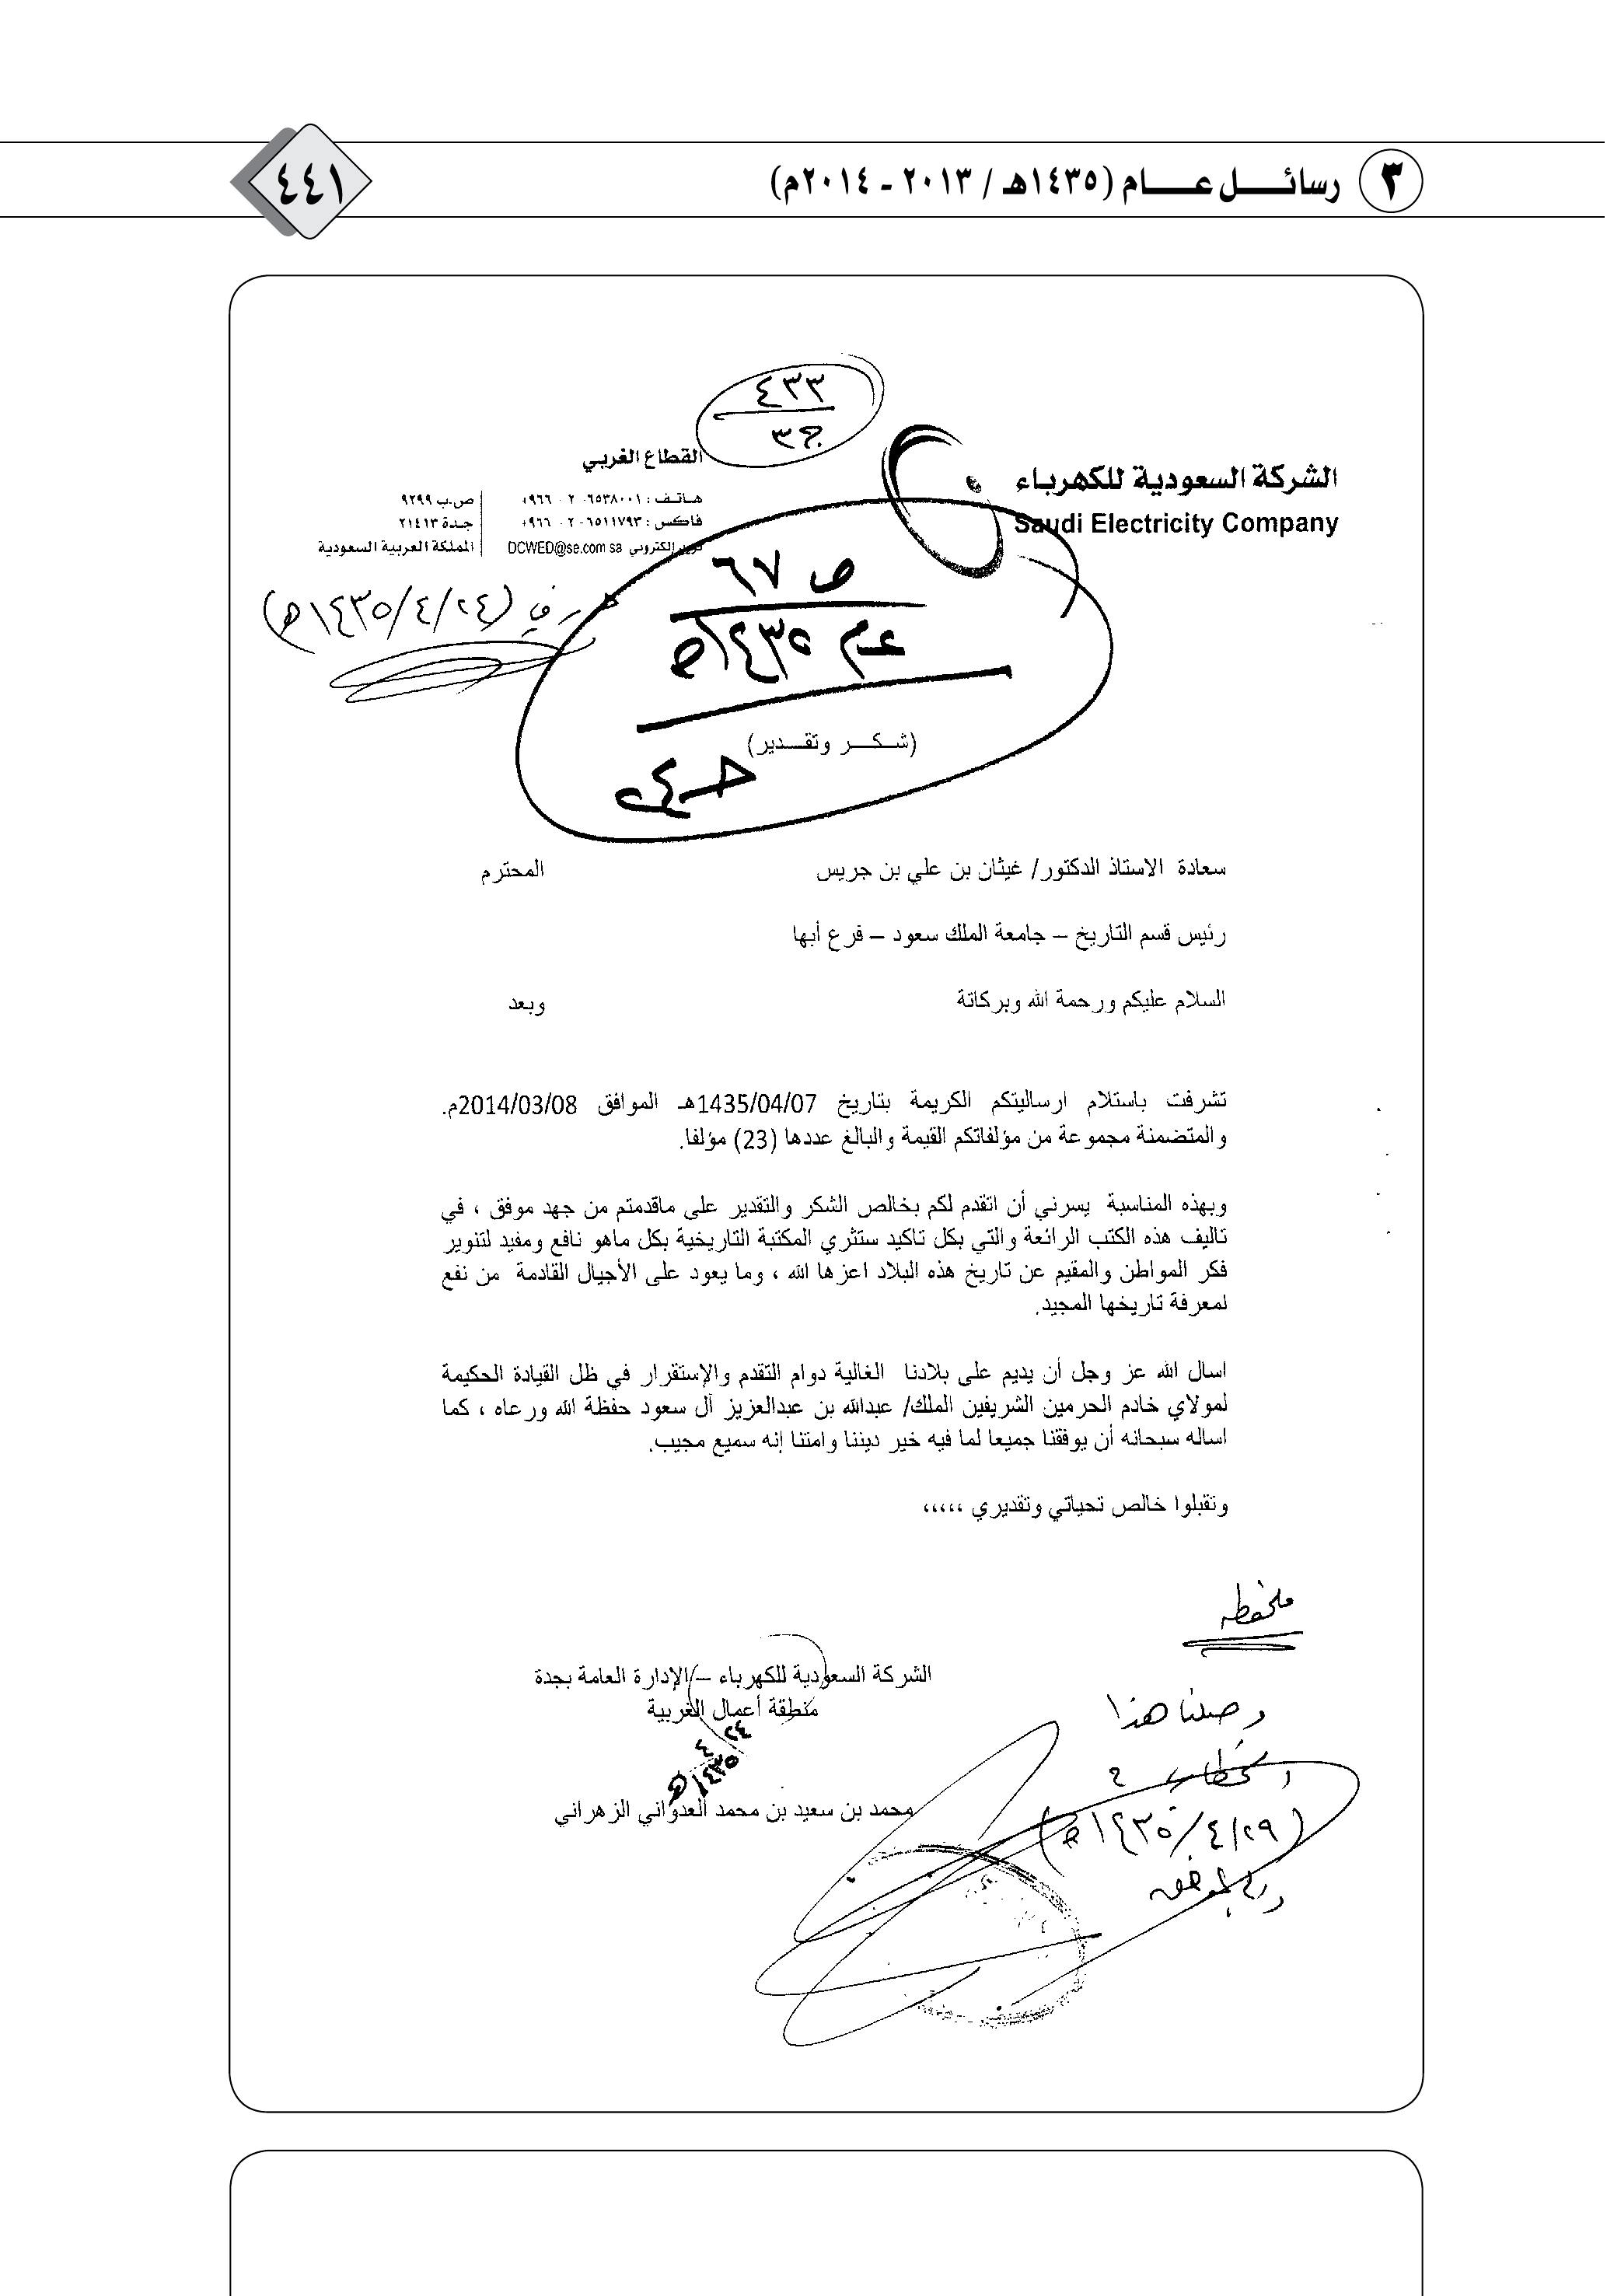 ٣ رسائــــل عـــــام (١٤٣٥هـ / ٢٠١٣ - ٢٠١٤م)
٤٤١
٤٣٣
ج٣
الشركة السعودية للكهرباء
Saudi Electricity Company
القطاع الغربي
هـاتـف : ٦٥٣٨٠٠١ ٠ ٢ ٠ ٩٦٦+
فاكس : ٦٥١١٧٩٣ ٠ ٢ ٠ ٩٦٦+
بريد إلكتروني DCWED@se.com sa
ص.ب ٩٢٩٩
جـدة ٢١٤١٣
المملكة العربية السعودية
في (١٤٣٥/٤/٢٤هـ)
ص ٦٧
عام ١٤٣٥هـ
(شــكـــر وتقــدير)
سعادة الاستاذ الدكتور/ غيثان بن علي بن جريس المحترم
رئيس قسم التاريخ – جامعة الملك سعود – فرع أبها
السلام عليكم ورحمة الله وبركاتة وبعد
تشرفت باستلام ارساليتكم الكريمة بتاريخ 1435/04/07هـ الموافق 2014/03/08م.
والمتضمنة مجموعة من مؤلفاتكم القيمة والبالغ عددها (23) مؤلفا.
وبهذه المناسبة يسرني أن اتقدم لكم بخالص الشكر والتقدير على ماقدمتم من جهد موفق ، في
تاليف هذه الكتب الرائعة والتي بكل تاكيد ستثري المكتبة التاريخية بكل ماهو نافع ومفيد لتنوير
فكر المواطن والمقيم عن تاريخ هذه البلاد اعزها الله ، وما يعود على الأجيال القادمة من نفع
لمعرفة تاريخها المجيد.
اسال الله عز وجل أن يديم على بلادنا الغالية دوام التقدم والإستقرار في ظل القيادة الحكيمة
لمولاي خادم الحرمين الشريفين الملك/ عبدالله بن عبدالعزيز آل سعود حفظة الله ورعاه ، كما
اساله سبحانه أن يوفقنا جميعا لما فيه خير ديننا وامتنا إنه سميع مجيب.
وتقبلوا خالص تحياتي وتقديري ،،،،،
الشركة السعودية للكهرباء –/الإدارة العامة بجدة
منطقة أعمال الغربية
٢٤/٤/١٤٣٥هـ
محمد بن سعيد بن محمد العدواني الزهراني
وصلنا هذا
(١٤٣٥/٤/٢٩هـ)